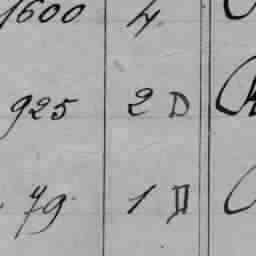 1600 4
925 2 D
79 1 D